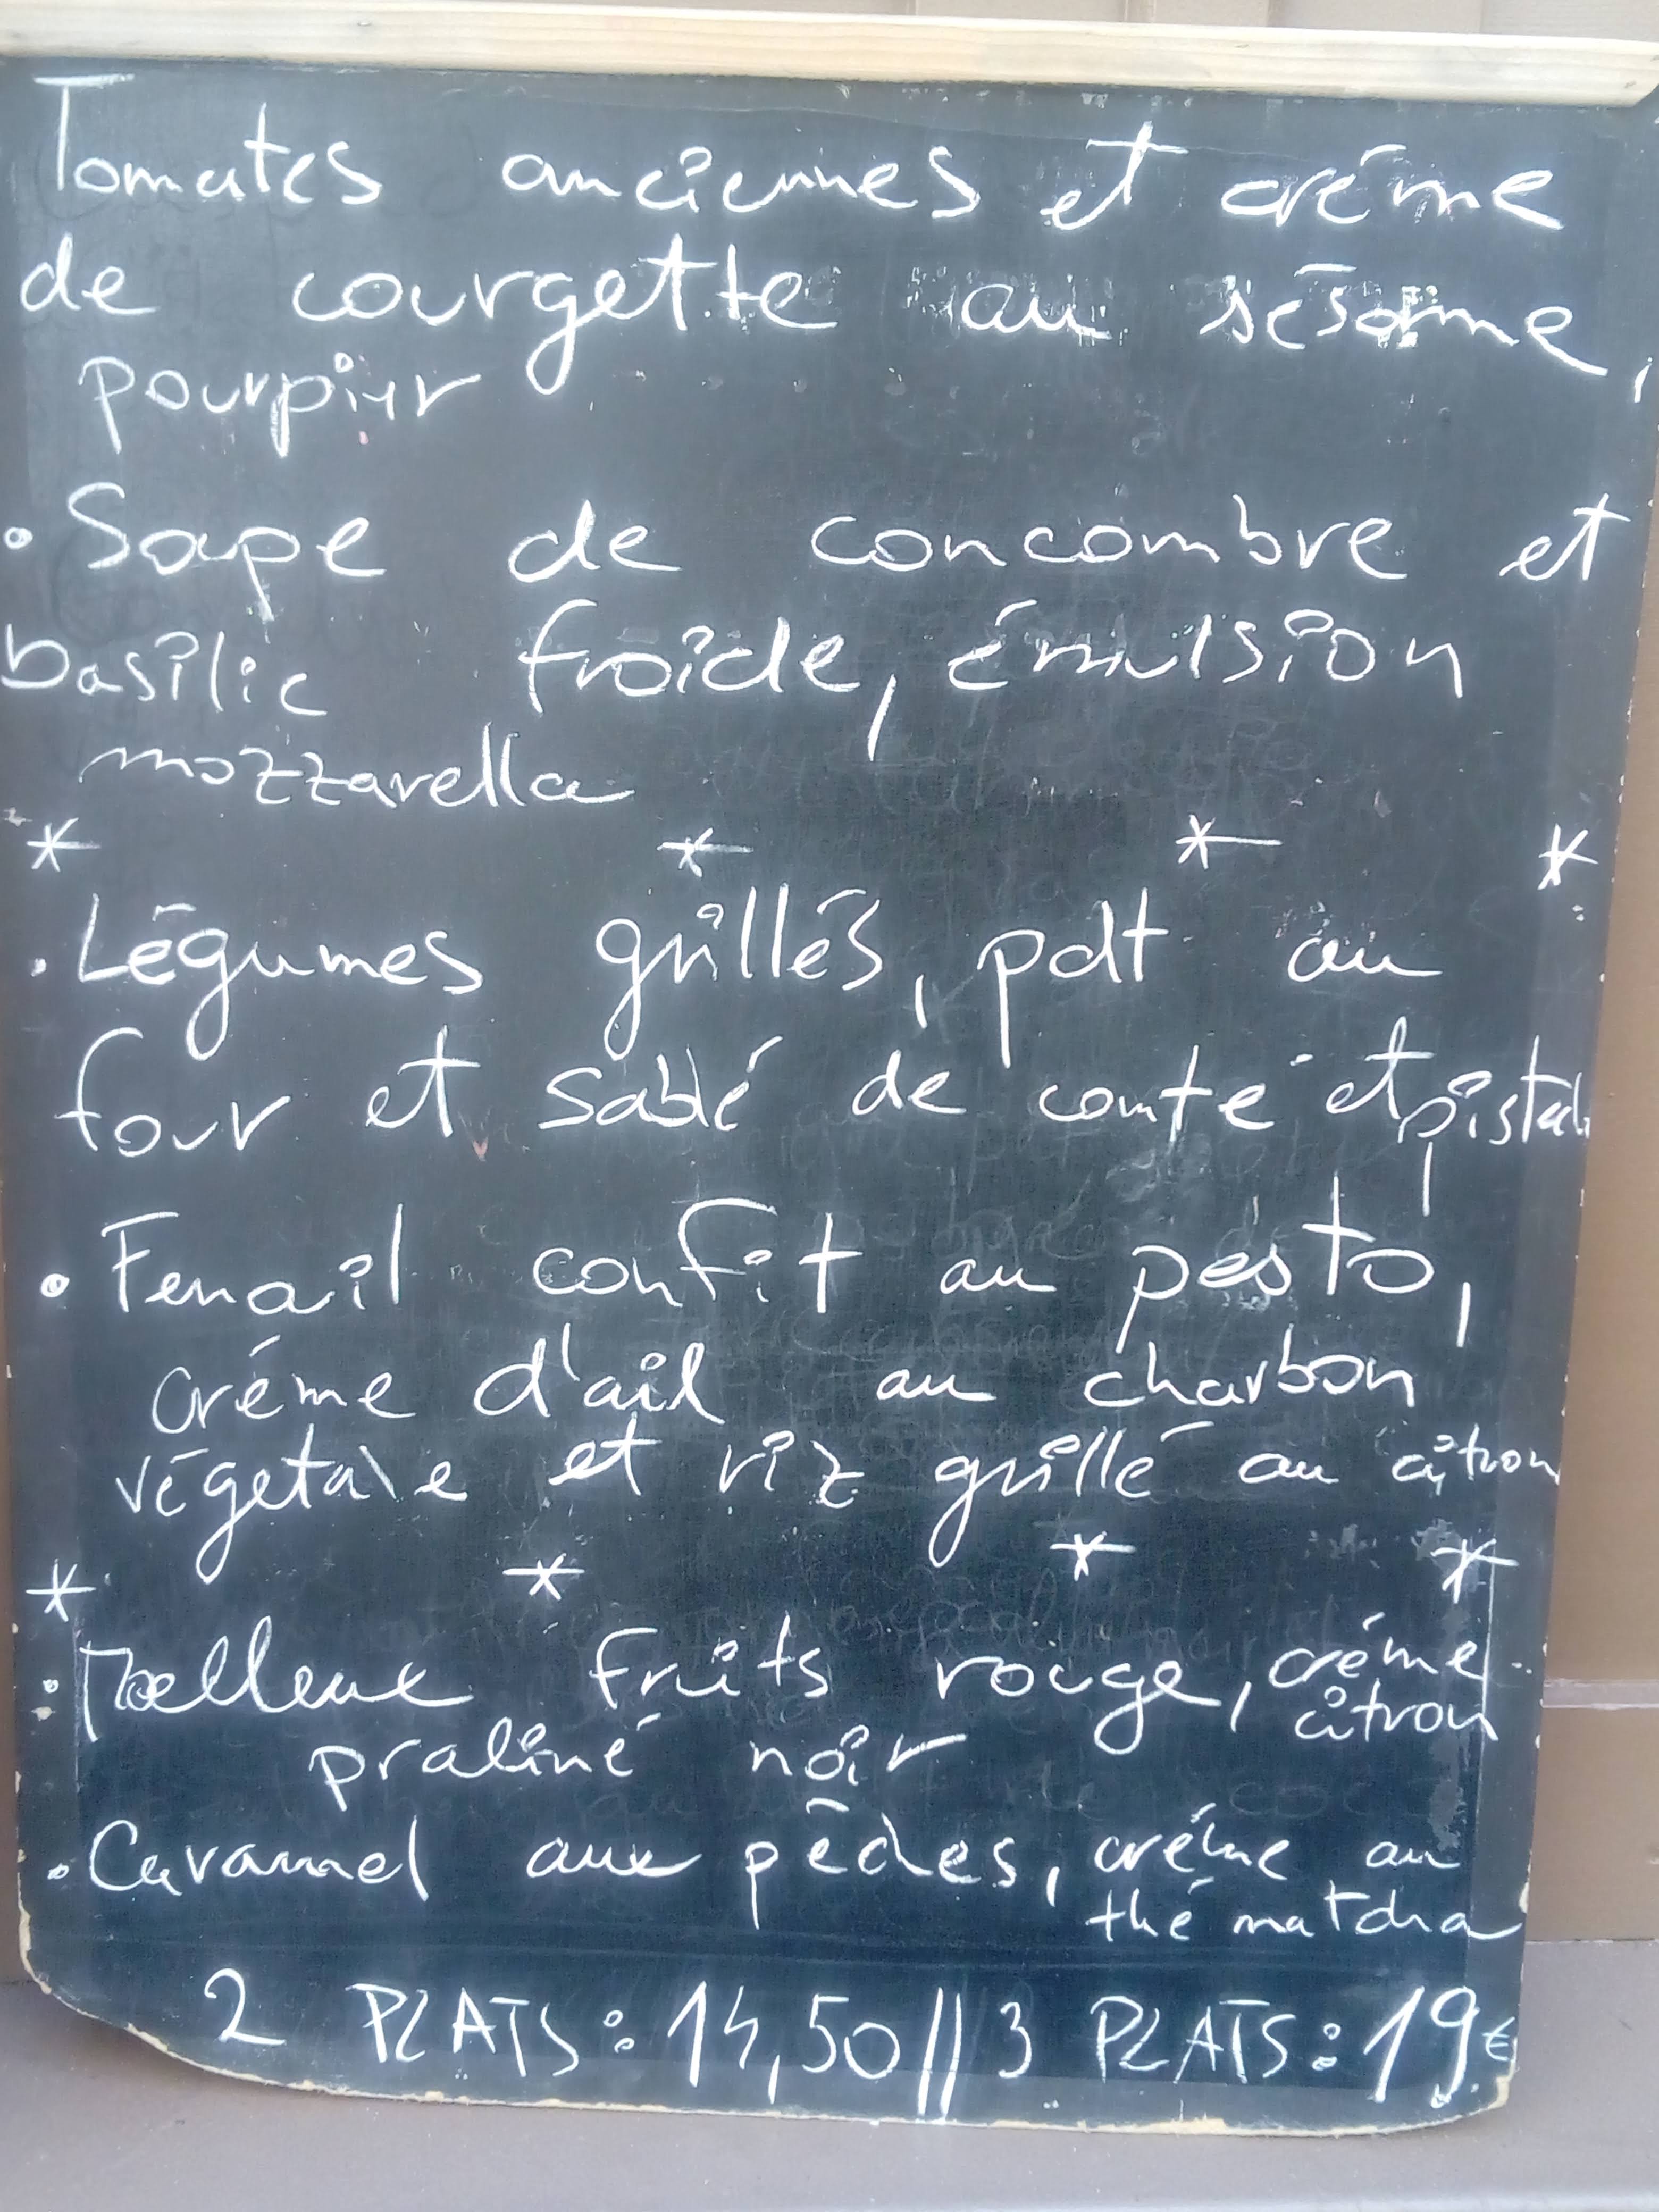 Tomates anciennes et créme
de courgette au sésame,
pourpier
• Soupe de concombre et
basilic froide, émulsion
mozzarella
* * * *
. Légumes grillés, pdt au
four et sablé de comté et pistach
• Fenouil confit au pesto,
créme d'ail au charbon
végetale et riz grillé au citron
* * * *
. Moelleux fruits rouge, créme
citron
praliné noir
. Caramel aux pêches, créme au
thé matcha
2 PLATS : 14,50 || 3 PLATS : 19€